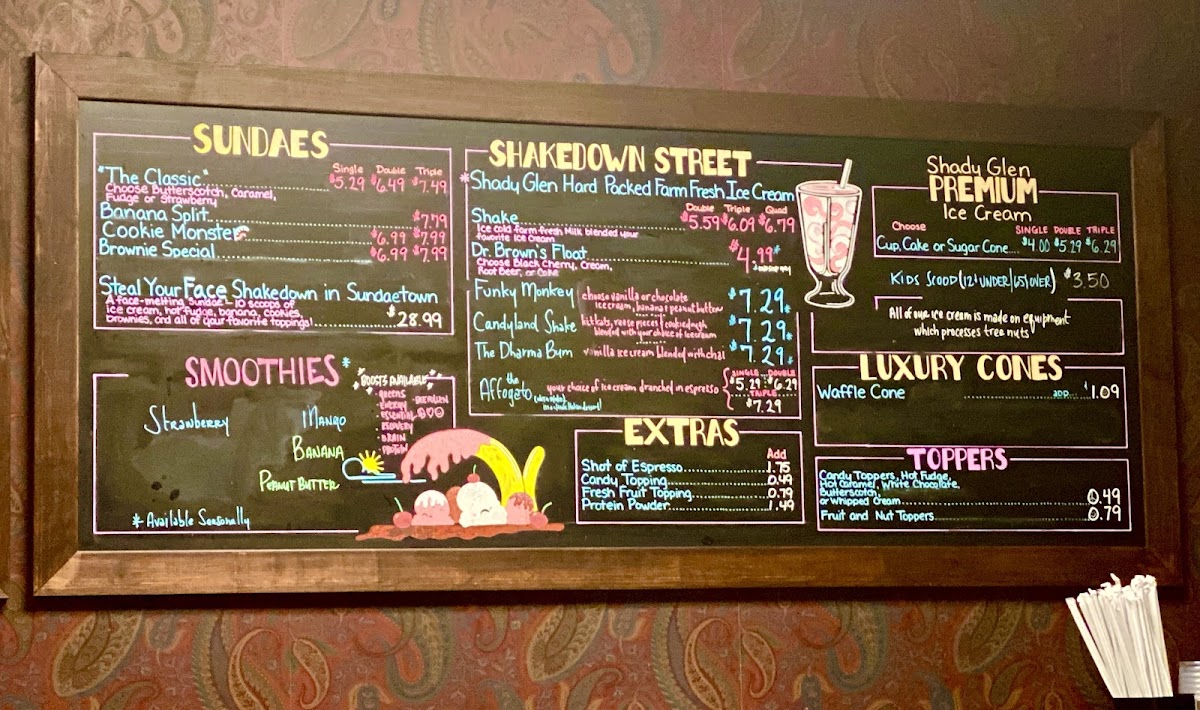 SUNDAES
Single Double Triple
"The Classic" $5.29 $6.49 $7.49
Choose Butterscotch, Caramel,
Fudge or Strawberry
Banana Split $7.79
Cookie Monster $6.99 $7.99
Brownie Special $6.99 $7.99
Steal Your Face Shakedown in Sundaetown
A face-melting sundae - 10 scoops of
ice cream, hot fudge, banana, cookies,
brownies, and all of your favorite toppings! $28.99
SMOOTHIES*
BOOSTS AVAILABLE
Strawberry
Mango
Banana
Peanut Butter
· GREENS
· ENERGY
· ESSENTIAL
· RECOVERY
· BRAIN
· PROTEIN
* Available Seasonally
SHAKEDOWN STREET
*Shady Glen Hard Packed Farm Fresh Ice Cream
Double Triple Quad
Shake $5.59 $6.09 $6.79
Ice cold farm fresh Milk blended your
favorite Ice Cream
Dr. Brown's Float $4.99*
Choose Black Cherry, Cream,
Root Beer, or Coke
Funky Monkey choose vanilla or chocolate $7.29
ice cream, banana & peanut butter
Candyland Shake kitkats, reese pieces & cookie dough $7.29
blended with your choice of ice cream
The Dharma Bum vanilla ice cream blended with chai $7.29
SINGLE DOUBLE
the Affogato your choice of ice cream drenched in espresso $5.29 $6.29
TRIPLE
$7.29
EXTRAS
Add
Shot of Espresso 1.75
Candy Topping 0.49
Fresh Fruit Topping 0.79
Protein Powder 1.49
Shady Glen
PREMIUM
Ice Cream
Choose SINGLE DOUBLE TRIPLE
Cup, Cake or Sugar Cone $4.00 $5.29 $6.29
KIDS SCOOP (12 & UNDER/65 & OVER) $3.50
All of our ice cream is made on equipment
which processes tree nuts
LUXURY CONES
Waffle Cone ADD $1.09
TOPPERS
Candy Toppers, Hot Fudge,
Hot Caramel, White Chocolate,
Butterscotch,
or Whipped Cream 0.49
Fruit and Nut Toppers 0.79